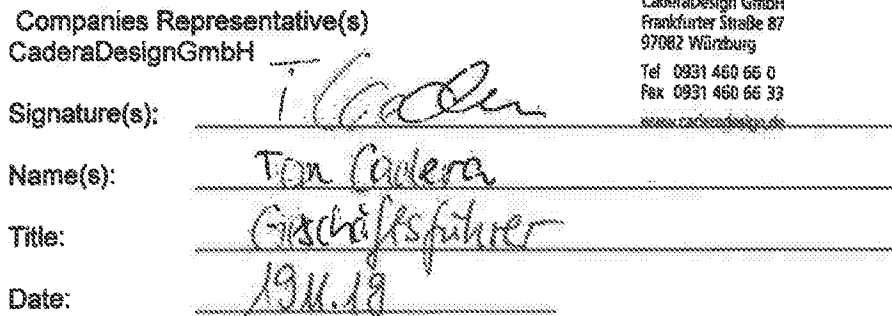 Companies Representative(s)
CaderaDesignGmbH
CaderaDesign GmbH
Frankfurter Straße 87
97082 Würzburg
Tel 0931 460 66 0
Fax 0931 460 66 33
www.caderadesign.de
Signature(s): T Cadera
Name(s): Tom Cadera
Title: Geschäftsführer
Date: 19.11.18